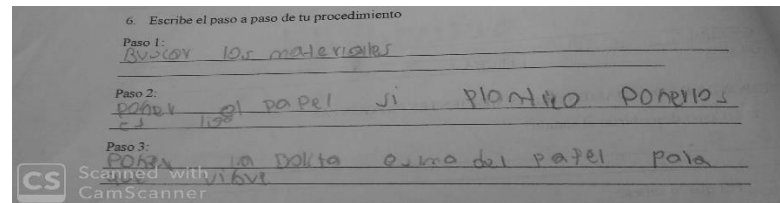 6. Escribe el paso a paso de tu procedimiento
Paso 1:
Buscar los materiales
Paso 2:
poner el papel si plantito ponerlos
Paso 3:
Poner la bolita ensima del papel pala
CS Scanned with
CamScanner